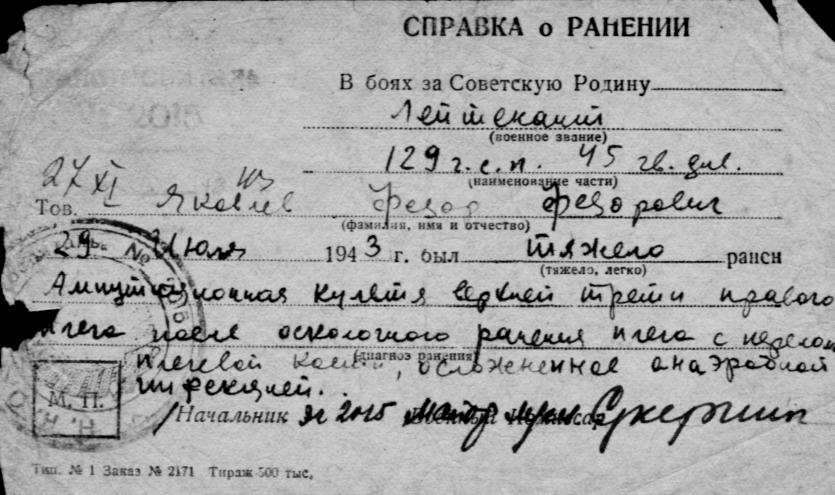 СПРАВКА о РАНЕНИИ
В боях за Советскую Родину
Лейтенант
(военное звание)
129 г.с.п. 45 гв. див.
(наименование части)
27 XI
Тов. Яковлев Федор Федорович
(фамилия, имя и отчество)
29 Июля 1943 г. был тяжело ранен
(тяжело, легко)
Ампутационная культя верхней трети правого
плеча после осколочного ранения плеча с
(диагноз ранения)
плечевой кости, осложненное анаэробной
инфекцией.
М. П.
Начальник ЭГ 2015 майор
Тип. № 1 Заказ № 2171 Тираж 500 тыс.